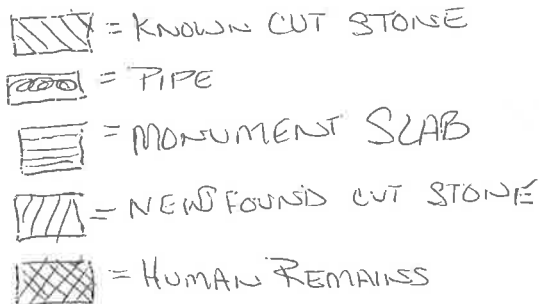 = KNOWN CUT STONE
= PIPE
= MONUMENT SLAB
= NEW FOUND CUT STONE
= HUMAN REMAINS